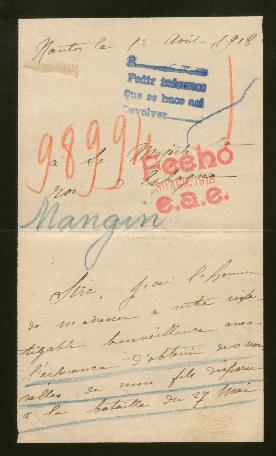 Nantes le 12 Août 1918
S.
Pedir informes
Que se hace así
Devolver
98994
à Sa Majesté le
Roi d'Espagne
Hecho
AGO. 1918
e.a.e.
Mangin
Sire, j'ai l'honneur
de m'adresser à votre infa
tigable bienveillance avec
l'espérance d'obtenir des nou
velles de mon fils disparu
à la bataille du 27 Mai